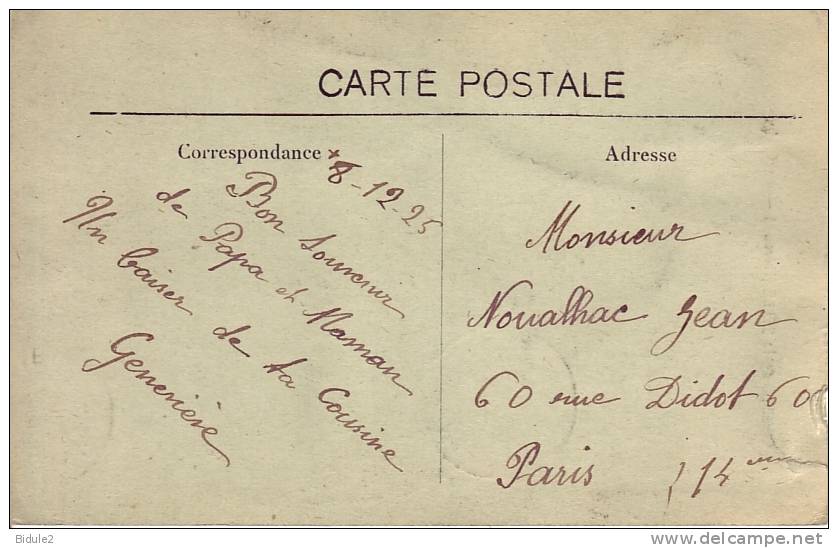 CARTE POSTALE
Correspondance
8-12-25
Bon Souvenir
de Papa et Maman
Un baiser de ta Cousine
Geneviève
Adresse
Monsieur
Noualhac Jean
60 rue Didot 60
Paris 14
Bidule2
www.delcampe.net